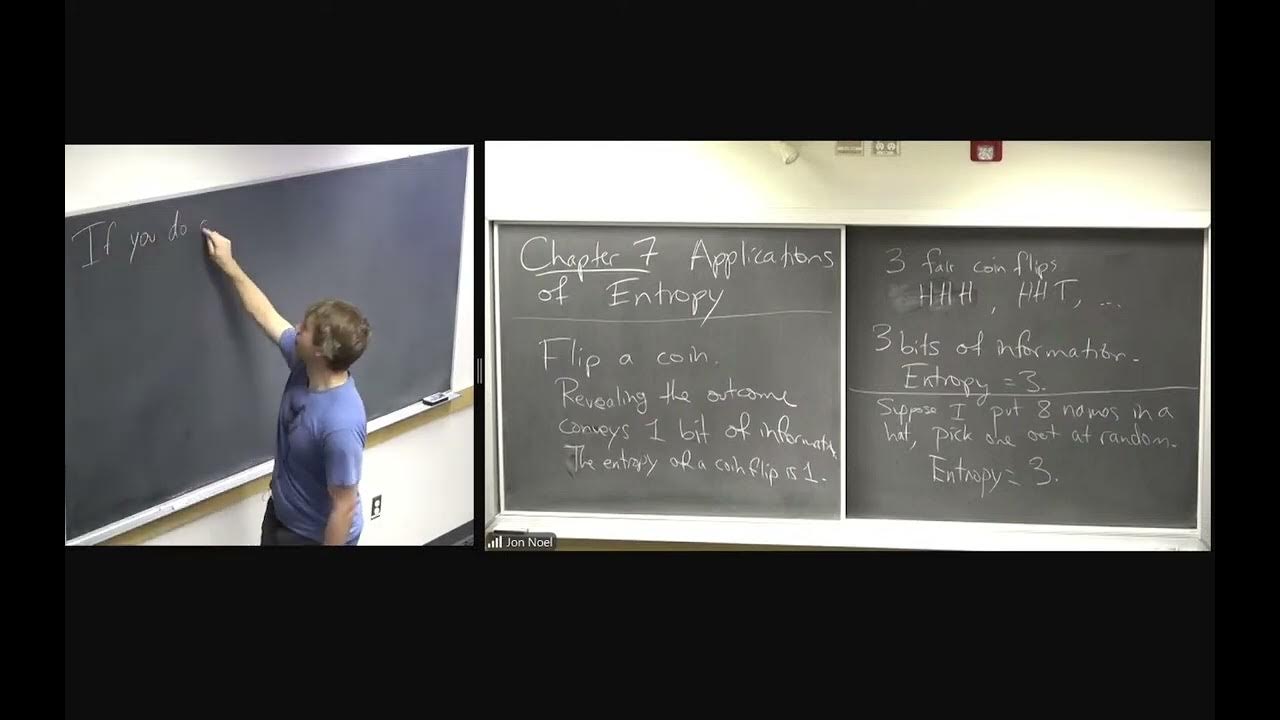 If you do
Chapter 7 Applications
of Entropy
Flip a coin.
Revealing the outcome
conveys 1 bit of informati
The entropy of a coin flip is 1.
3 fair coin flips
HHH, HHT, ...
3 bits of information.
Entropy = 3.
Suppose I put 8 names in a
hat, pick one out at random.
Entropy = 3.
Jon Noel